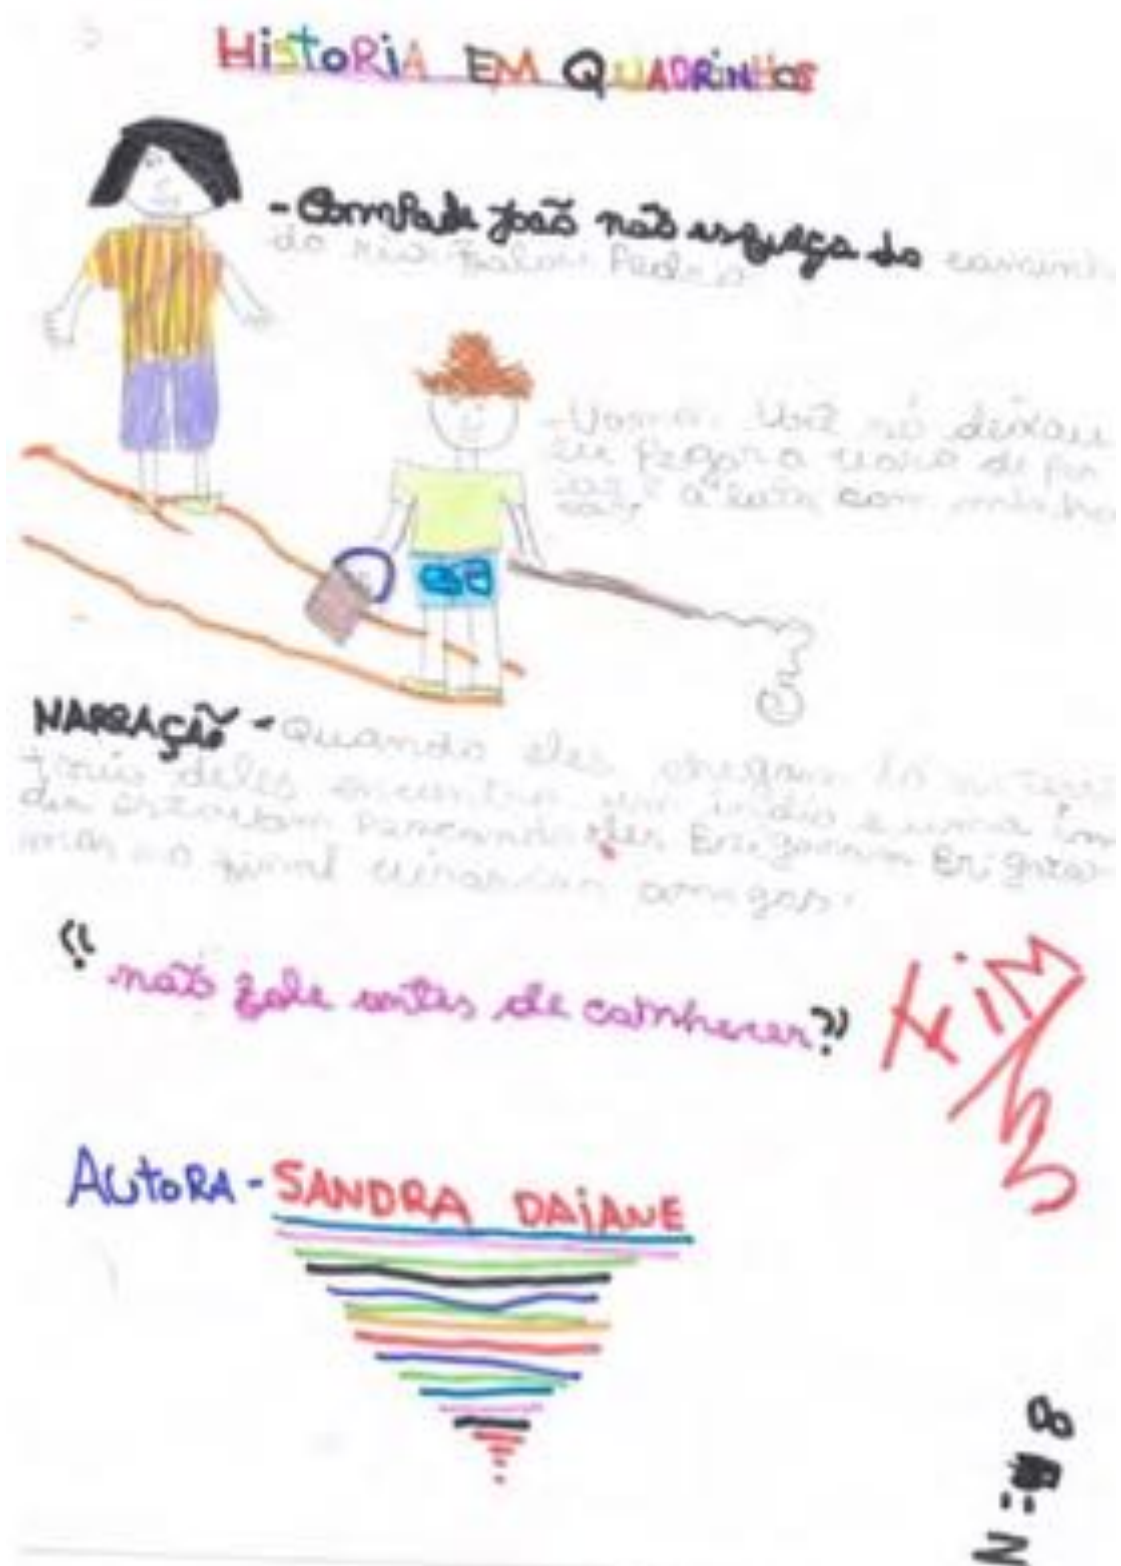 HiSTORiA EM QUADRiNHOS
- Compade João não esqueça do caminh
do rio Falou Pedro
- Vamo. Você só deixou
eu pegar a vara de pes
car e a lata com minho
NARRAÇÃO - Quando eles chegam lá
deles encontra um índio e uma ín
dia estavam pescando eles Brigaram Brigaram
mas no final viraram amigos.
"não fale antes de comhecer?"
FiM
AUtORA - SANDRA DAiANE
N = 8